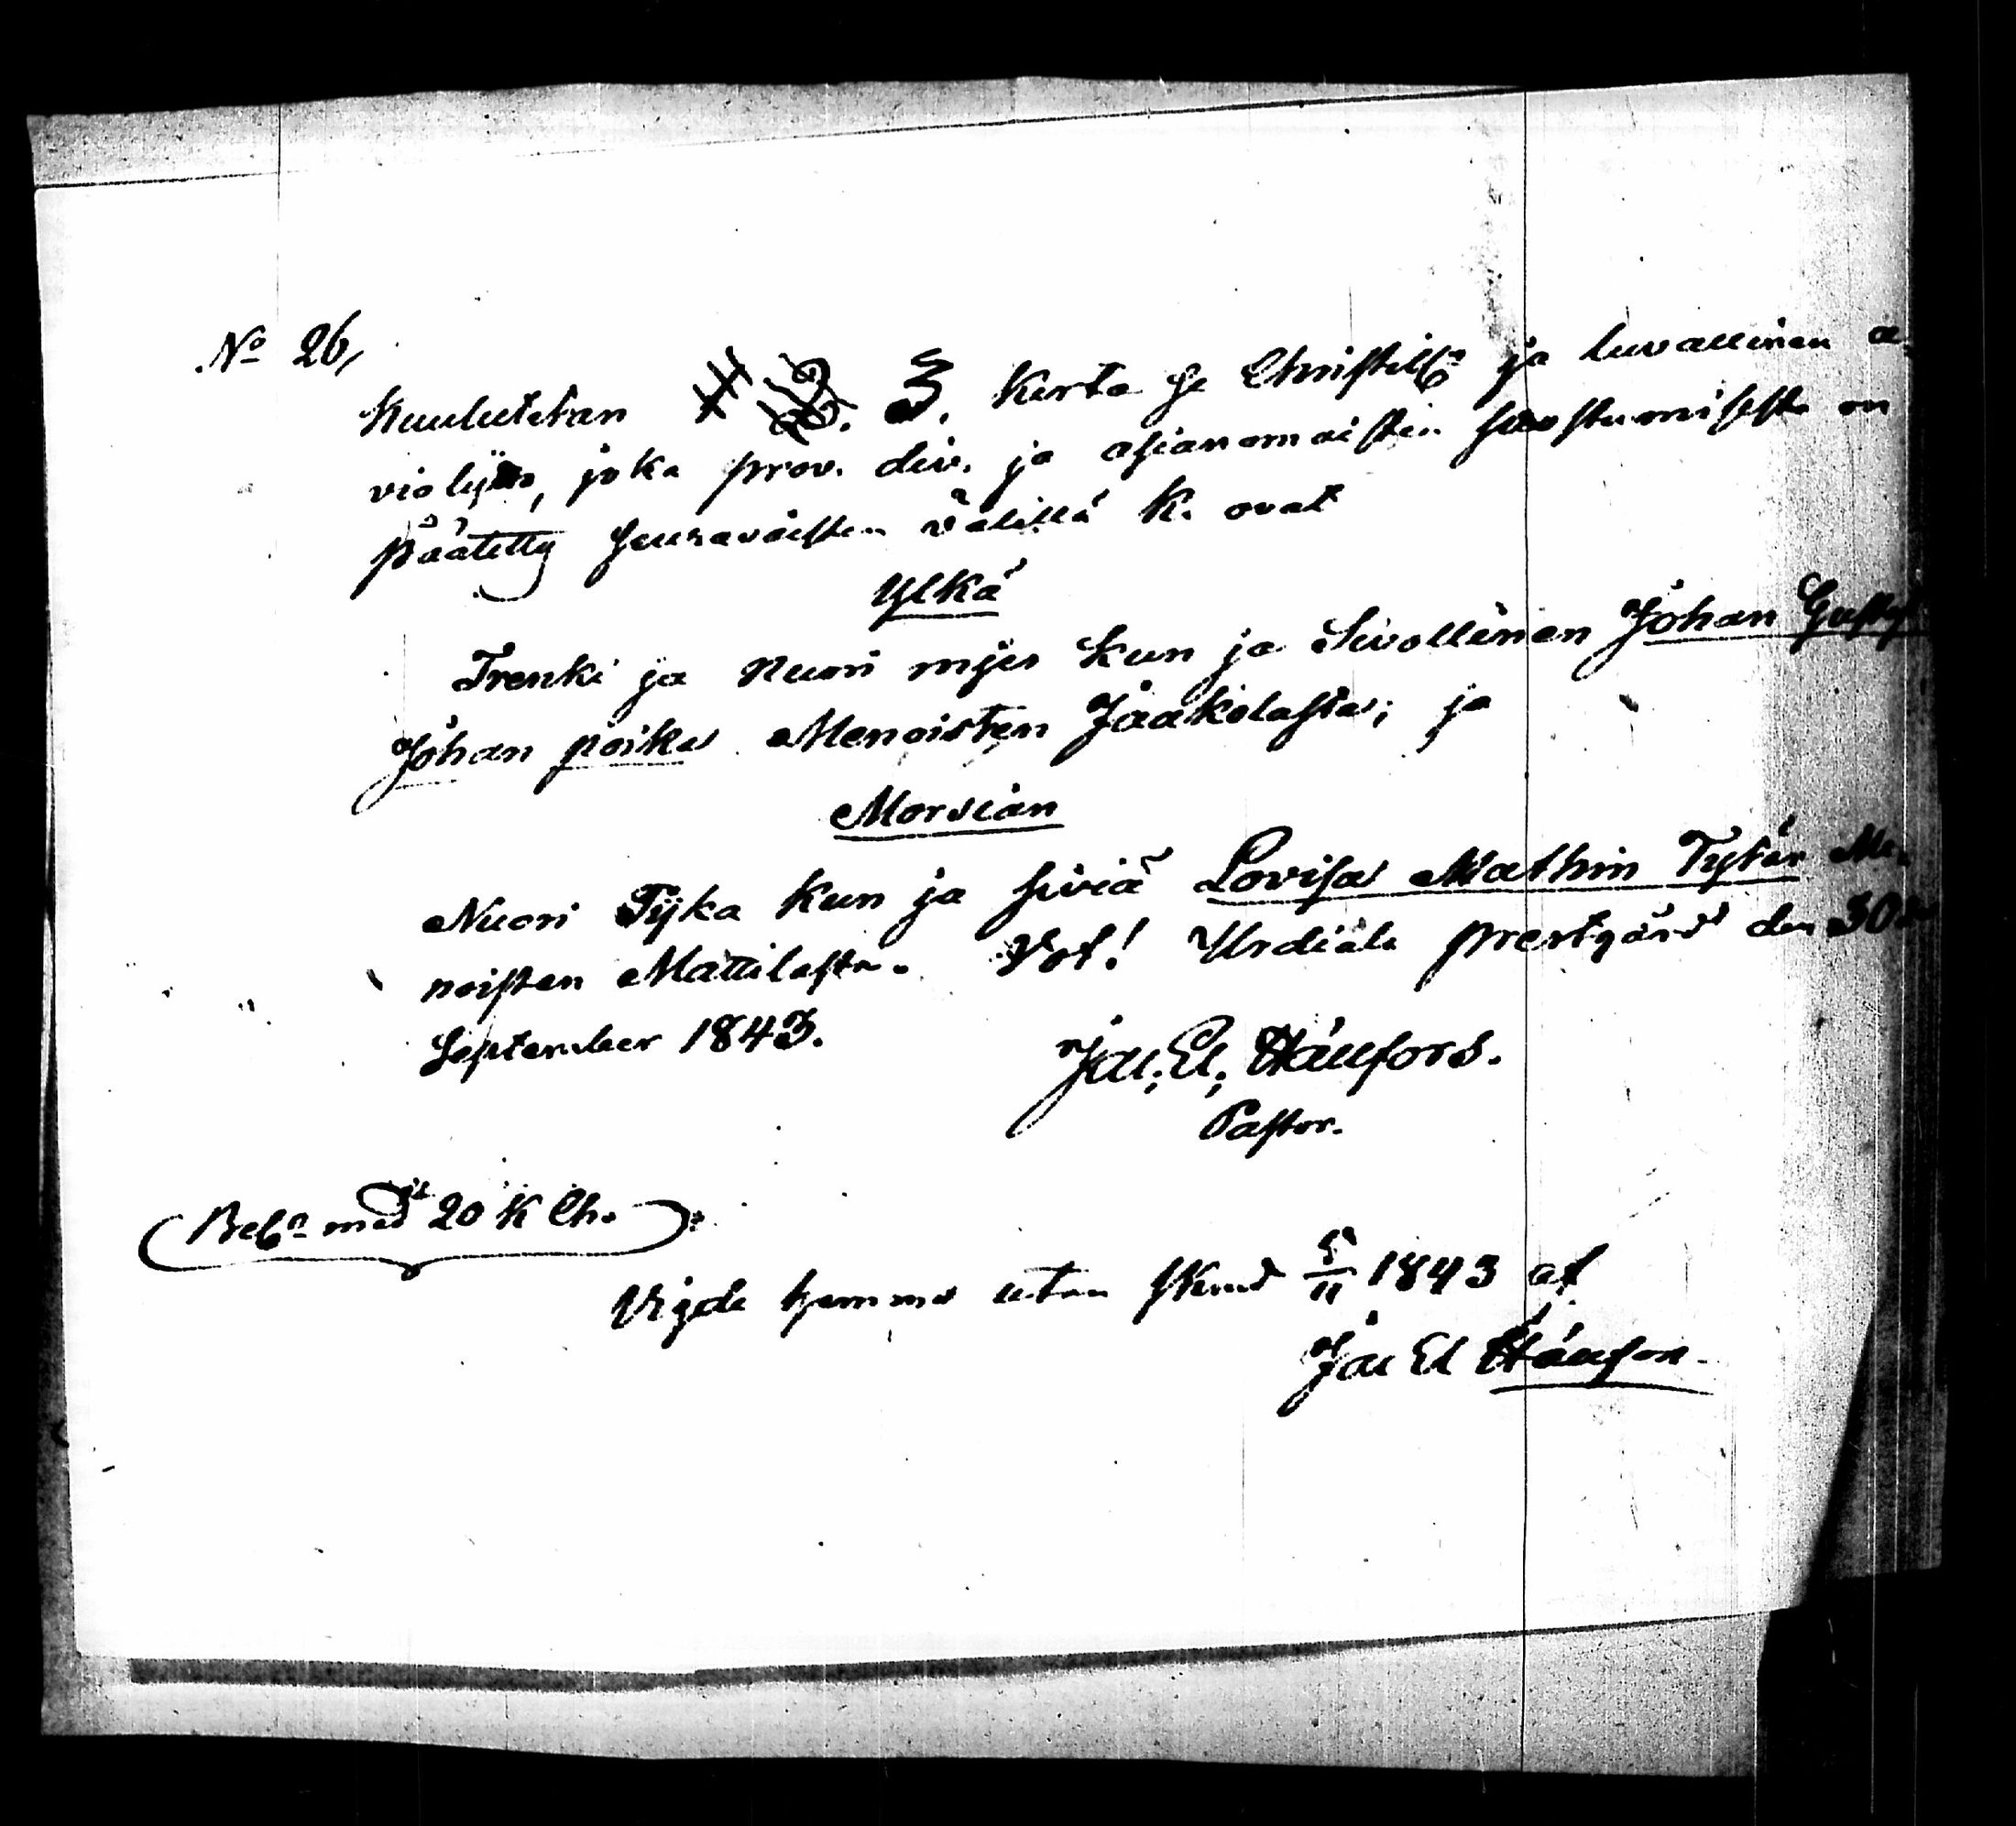 No 26,
Kuulutetan 3. Kerta se Christill. ja luvallinen a-
violijtto, joka prov. div. ja asianomaisten suostumisesta on
päätetty seuravaisten välillä k. ovat
Ylkä
Trenki ja nuori mijes Kun ja Sivollinen Johan Gustaf
Johan poika Menoisten Jaakolasta; ja
Morsian
Nuori Pijka Kun ja siviä Lovisa Mathin Tytär Me-
noisten Mattilasta. Vot! Urdiala prestgård den 30
September 1843.
Pastor.
med 20 K
Vigde hemma utan 5/11 1843 af